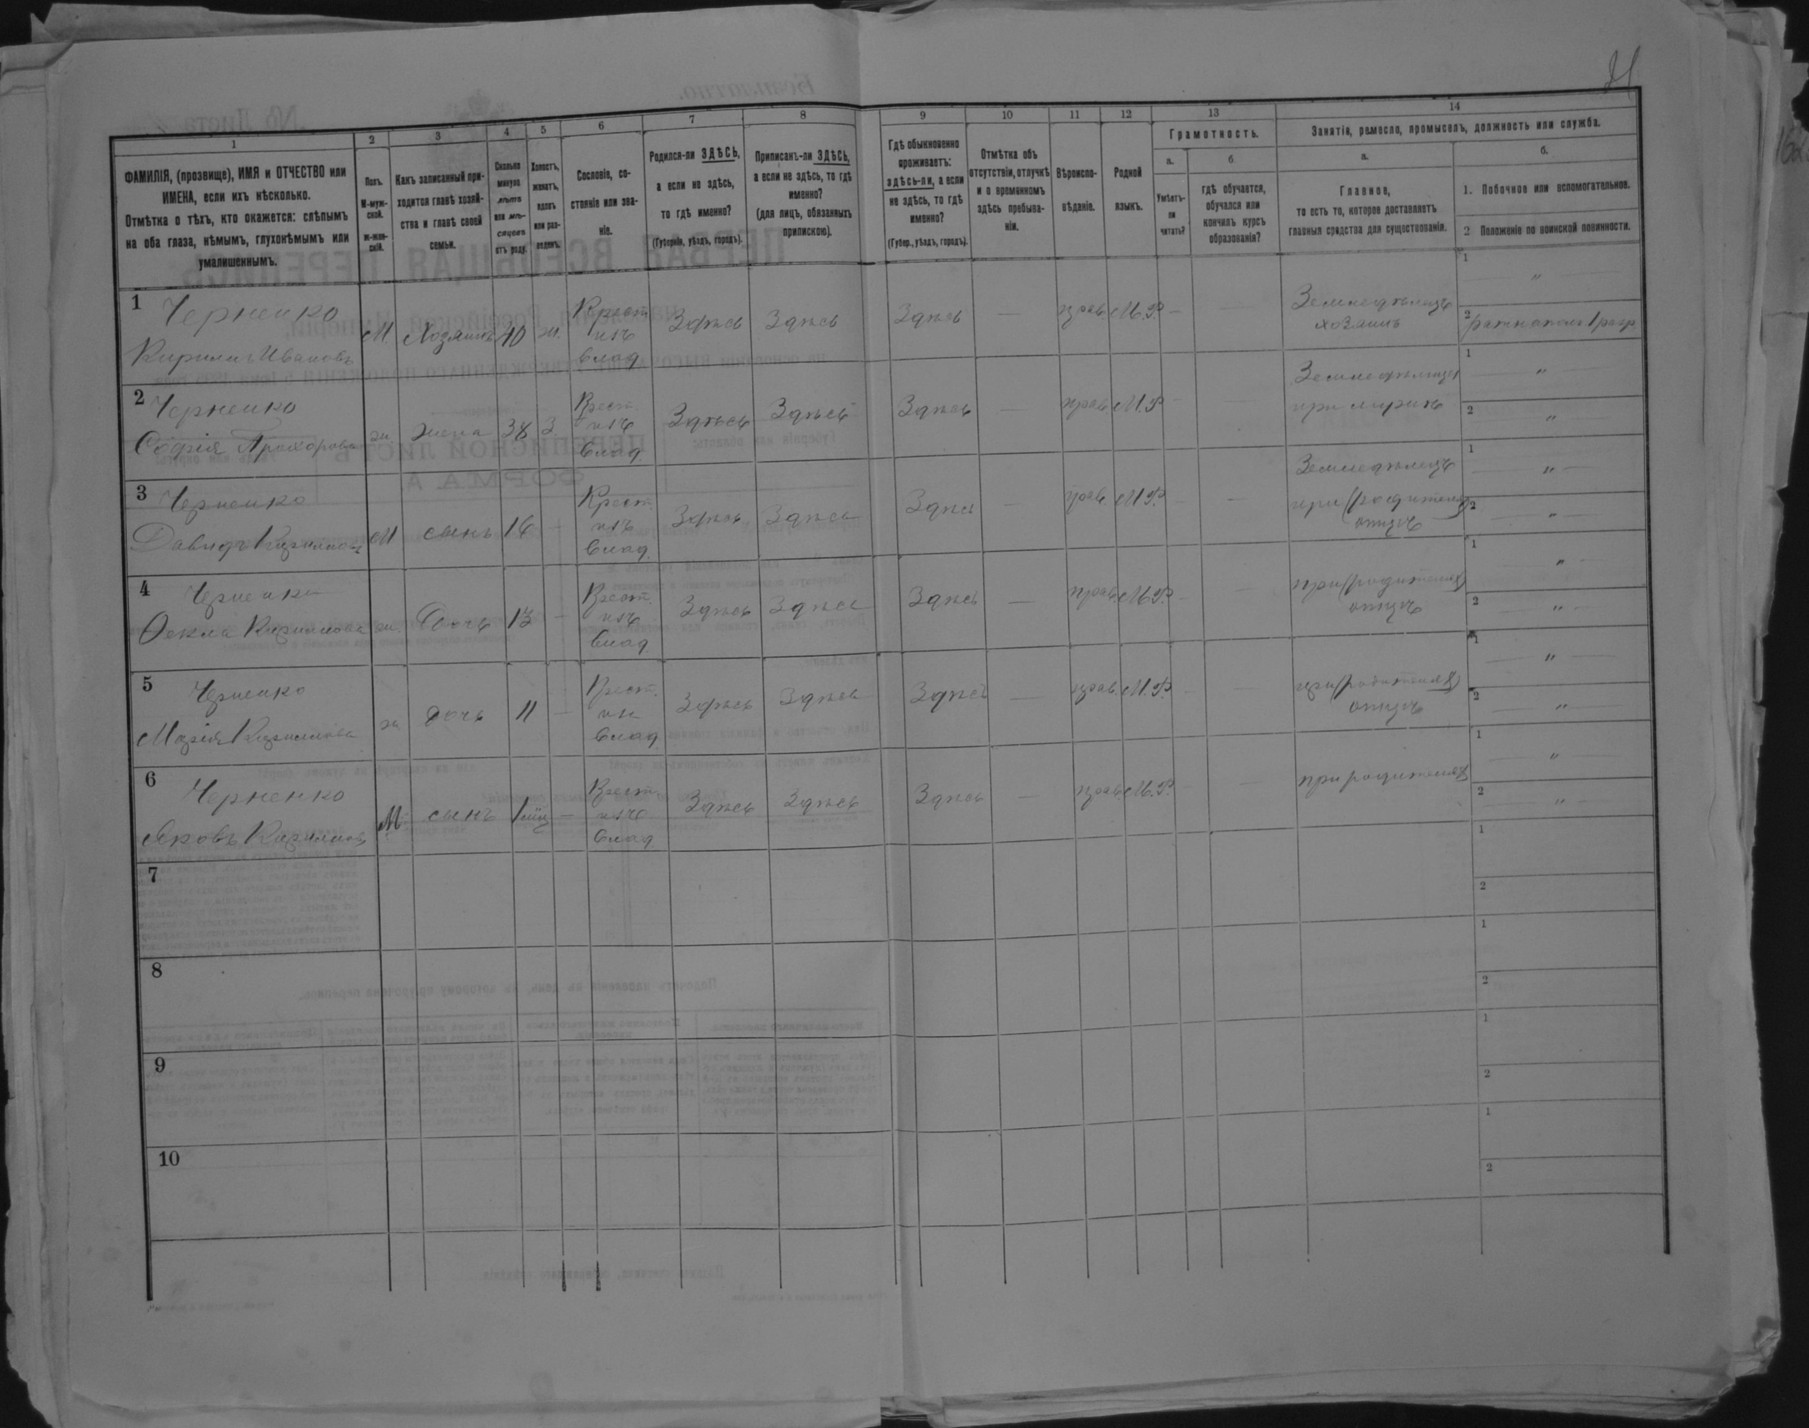 1 2 3 4 5 6 7 8 9 10 11 12 13 14
ФАМИЛІЯ, (прозвище), ИМЯ и ОТЧЕСТВО или
ИМЕНА, если ихъ нѣсколько.
Отмѣтка о тѣхъ, кто окажется: слѣпымъ
на оба глаза, нѣмымъ, глухонѣмымъ или
умалишеннымъ.
Полъ.
М-муж-
ской.
ж-жен-
скій.
Какъ записанный при-
ходится главѣ хозяй-
ства и главѣ своей
семьи.
Сколько
минуло
лѣтъ
или мѣ-
сяцевъ
отъ роду.
Холостъ,
женатъ,
вдовъ
или раз-
веденъ.
Сословіе, со-
стояніе или зва-
ніе.
Родился-ли ЗДѢСЬ,
а если не здѣсь,
то гдѣ именно?
(Губернія, уѣздъ, городъ).
Приписанъ-ли ЗДѢСЬ,
а если не здѣсь, то гдѣ
именно?
(для лицъ, обязанныхъ
припискою).
Гдѣ обыкновенно
проживаетъ:
здѣсь-ли, а если
не здѣсь, то гдѣ
именно?
(Губер., уѣздъ, городъ).
Отмѣтка объ
отсутствіи, отлучкѣ
и о временномъ
здѣсь пребыва-
ніи.
Вѣроиспо-
вѣданіе.
Родной
языкъ.
Грамотность.
а.
Умѣетъ-
ли
читать?
б
гдѣ обучается,
обучался или
кончилъ курсъ
образованія?
Занятія, ремесло, промыселъ, должность или служба.
а.
Главное,
то есть то, которое доставляетъ
главныя средства для существованія.
б.
1. Побочное или вспомогательное.
2 Положеніе по воинской повинности.
1 Черненко
Кирилъ Ивановъ
М. Хозяинъ 40 ж.
Крест.
изъ
влад.
Здѣсь Здѣсь Здѣсь — прав. М.Р. — —
Земледѣлецъ
хозяинъ
1 "
2
2 Черненко
София Прохорова
ж жена 38 З
Крест.
изъ
влад.
Здѣсь Здѣсь Здѣсь — прав. М.Р. — —
Земледѣлецъ
при мужѣ
1 "
2 "
3 Черненко
Давидъ Кирилловъ
М сынъ 16 —
Крест.
изъ
влад.
Здѣсь Здѣсь Здѣсь — прав. М.Р. — —
Земледѣлецъ
при
отцѣ
1 "
2 "
4 Черненко
Ѳекла Кириллова
ж. дочь 13 —
Крест.
изъ
влад.
Здѣсь Здѣсь Здѣсь — прав. М.Р. — —
при
отцѣ
1 "
2 "
5 Черненко
Марія Кириллова
ж дочь 11 —
Крест.
изъ
влад.
Здѣсь Здѣсь Здѣсь — прав. М.Р. — —
при
отцѣ
1 "
2 "
6 Черненко
Яковъ Кирилловъ
М сынъ —
Крест.
изъ
влад.
Здѣсь Здѣсь Здѣсь — прав. М.Р. — —
при родителяхъ
1 "
2 "
7
1
2
8
1
2
9
1
2
10
1
2